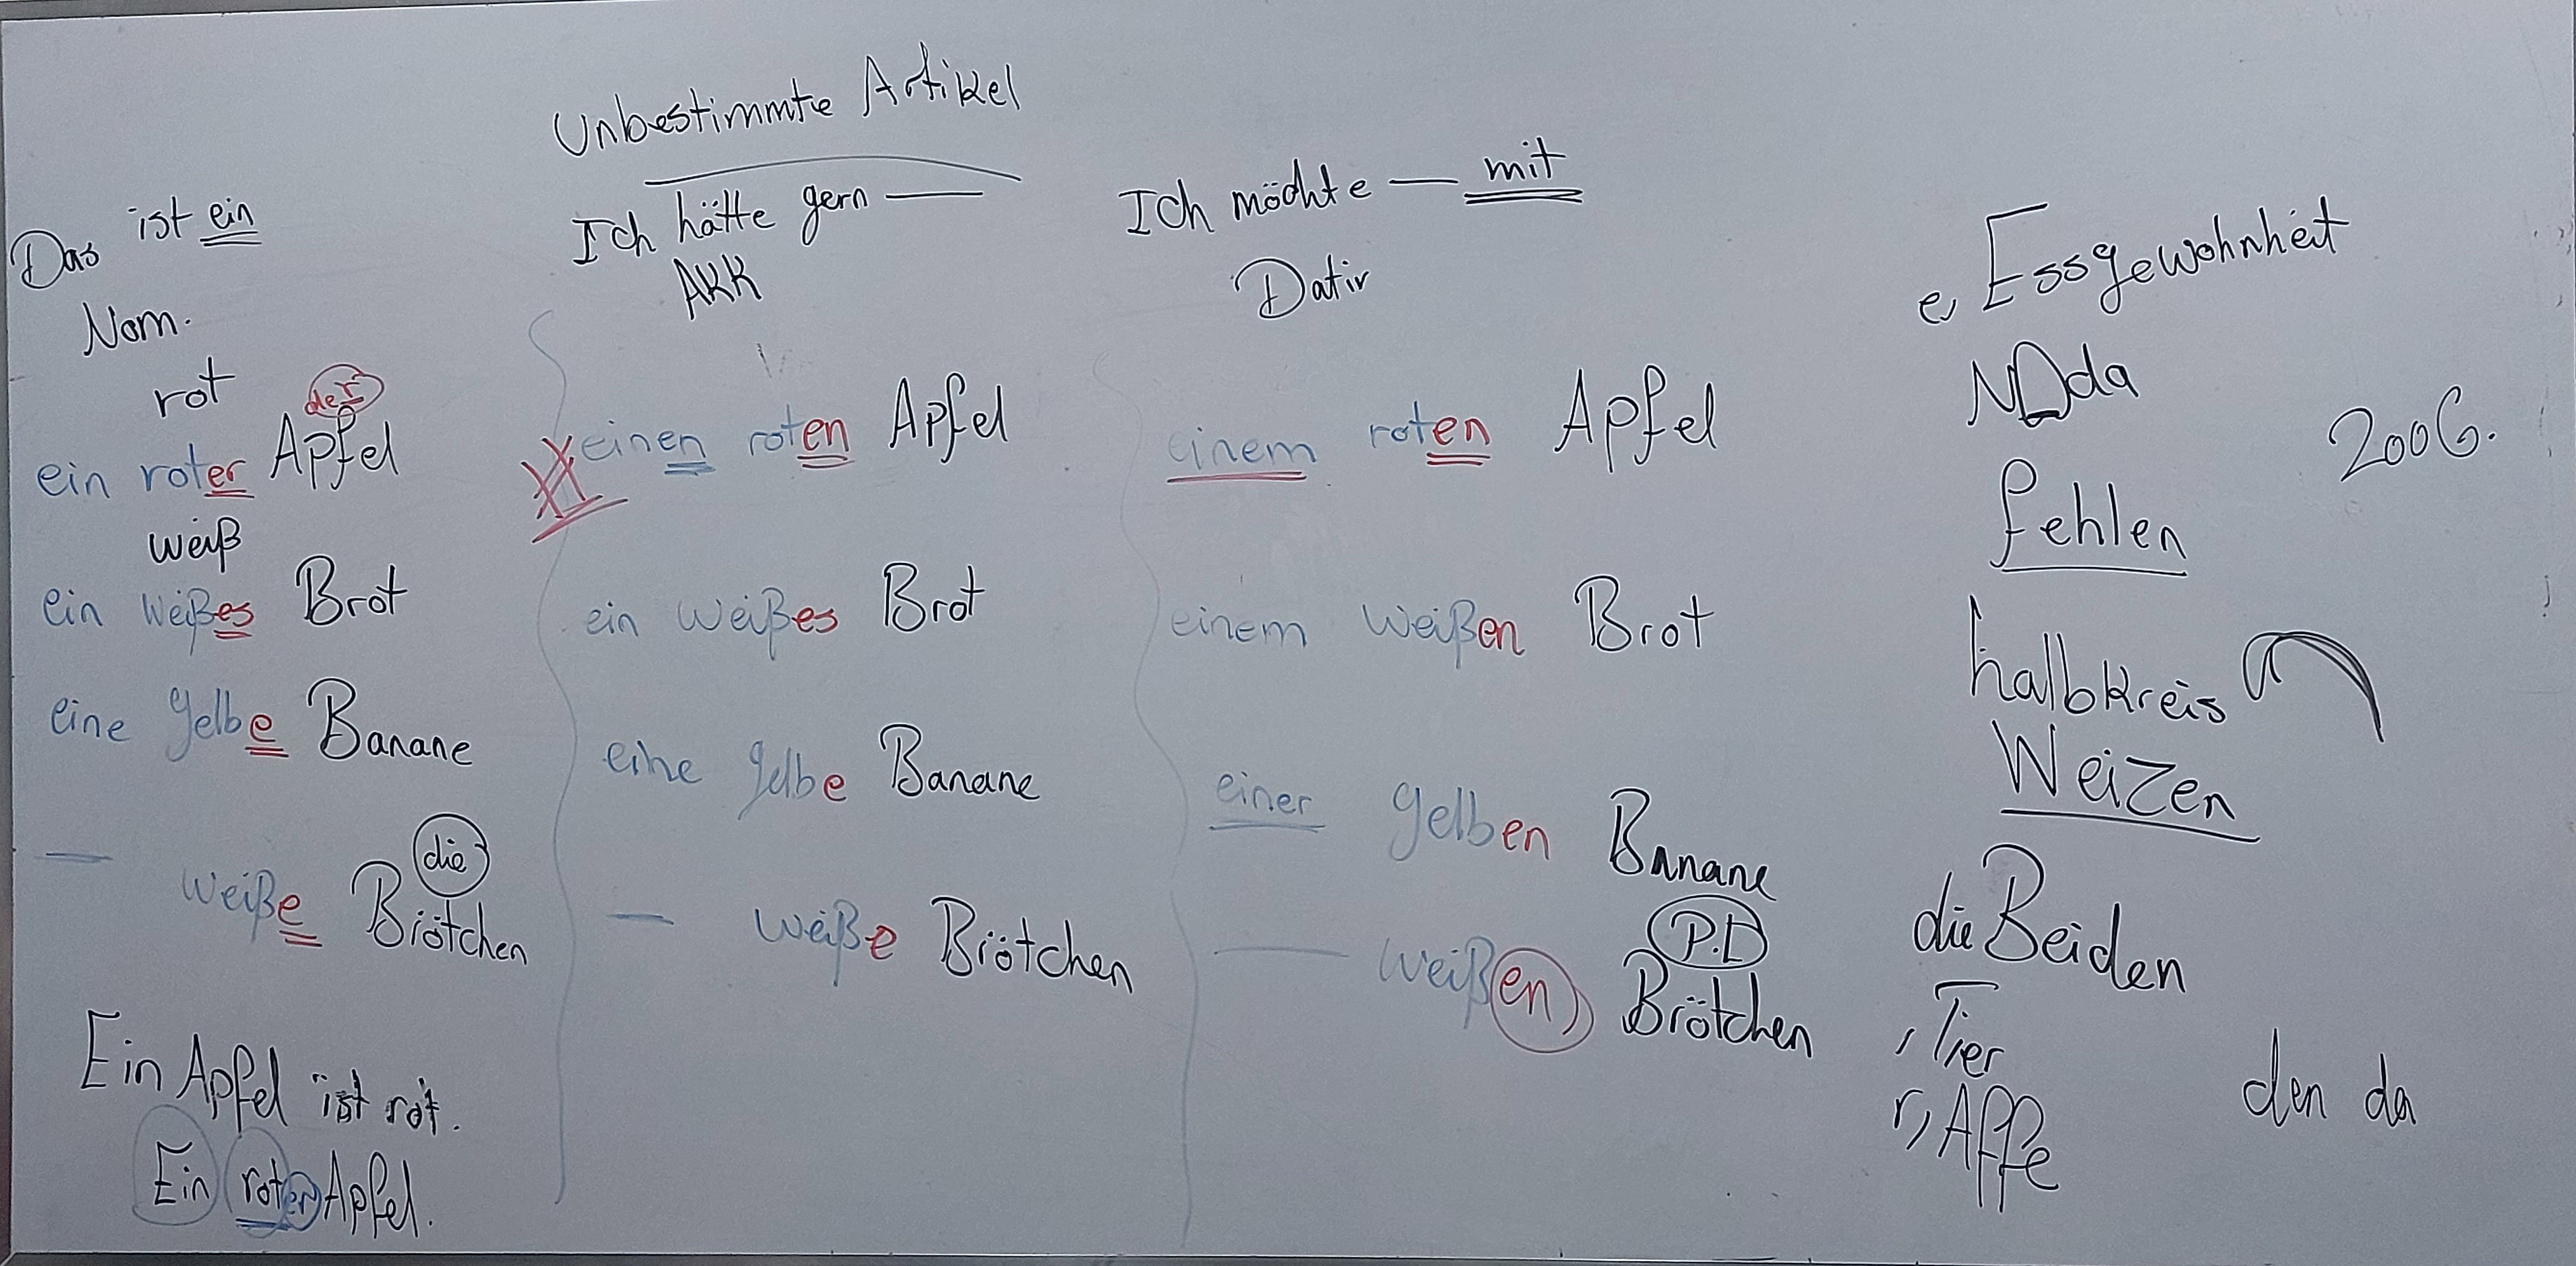 Unbestimmte Artikel
Das ist ein
Nom.
rot
der
ein roter Apfel
weiß
ein weißes Brot
eine gelbe Banane
die
— weiße Brötchen
Ein Apfel ist rot.
Ein roter Apfel.
Ich hätte gern —
AKK
einen roten Apfel
ein weißes Brot
eine gelbe Banane
— weiße Brötchen
Ich möchte — mit
Dativ
einem roten Apfel
einem weißen Brot
einer gelben Banane
P.D
— weißen Brötchen
e, Essgewohnheit
da
200G.
fehlen
halbkreis
Weizen
die Beiden
, Tier
r, Affe
den da